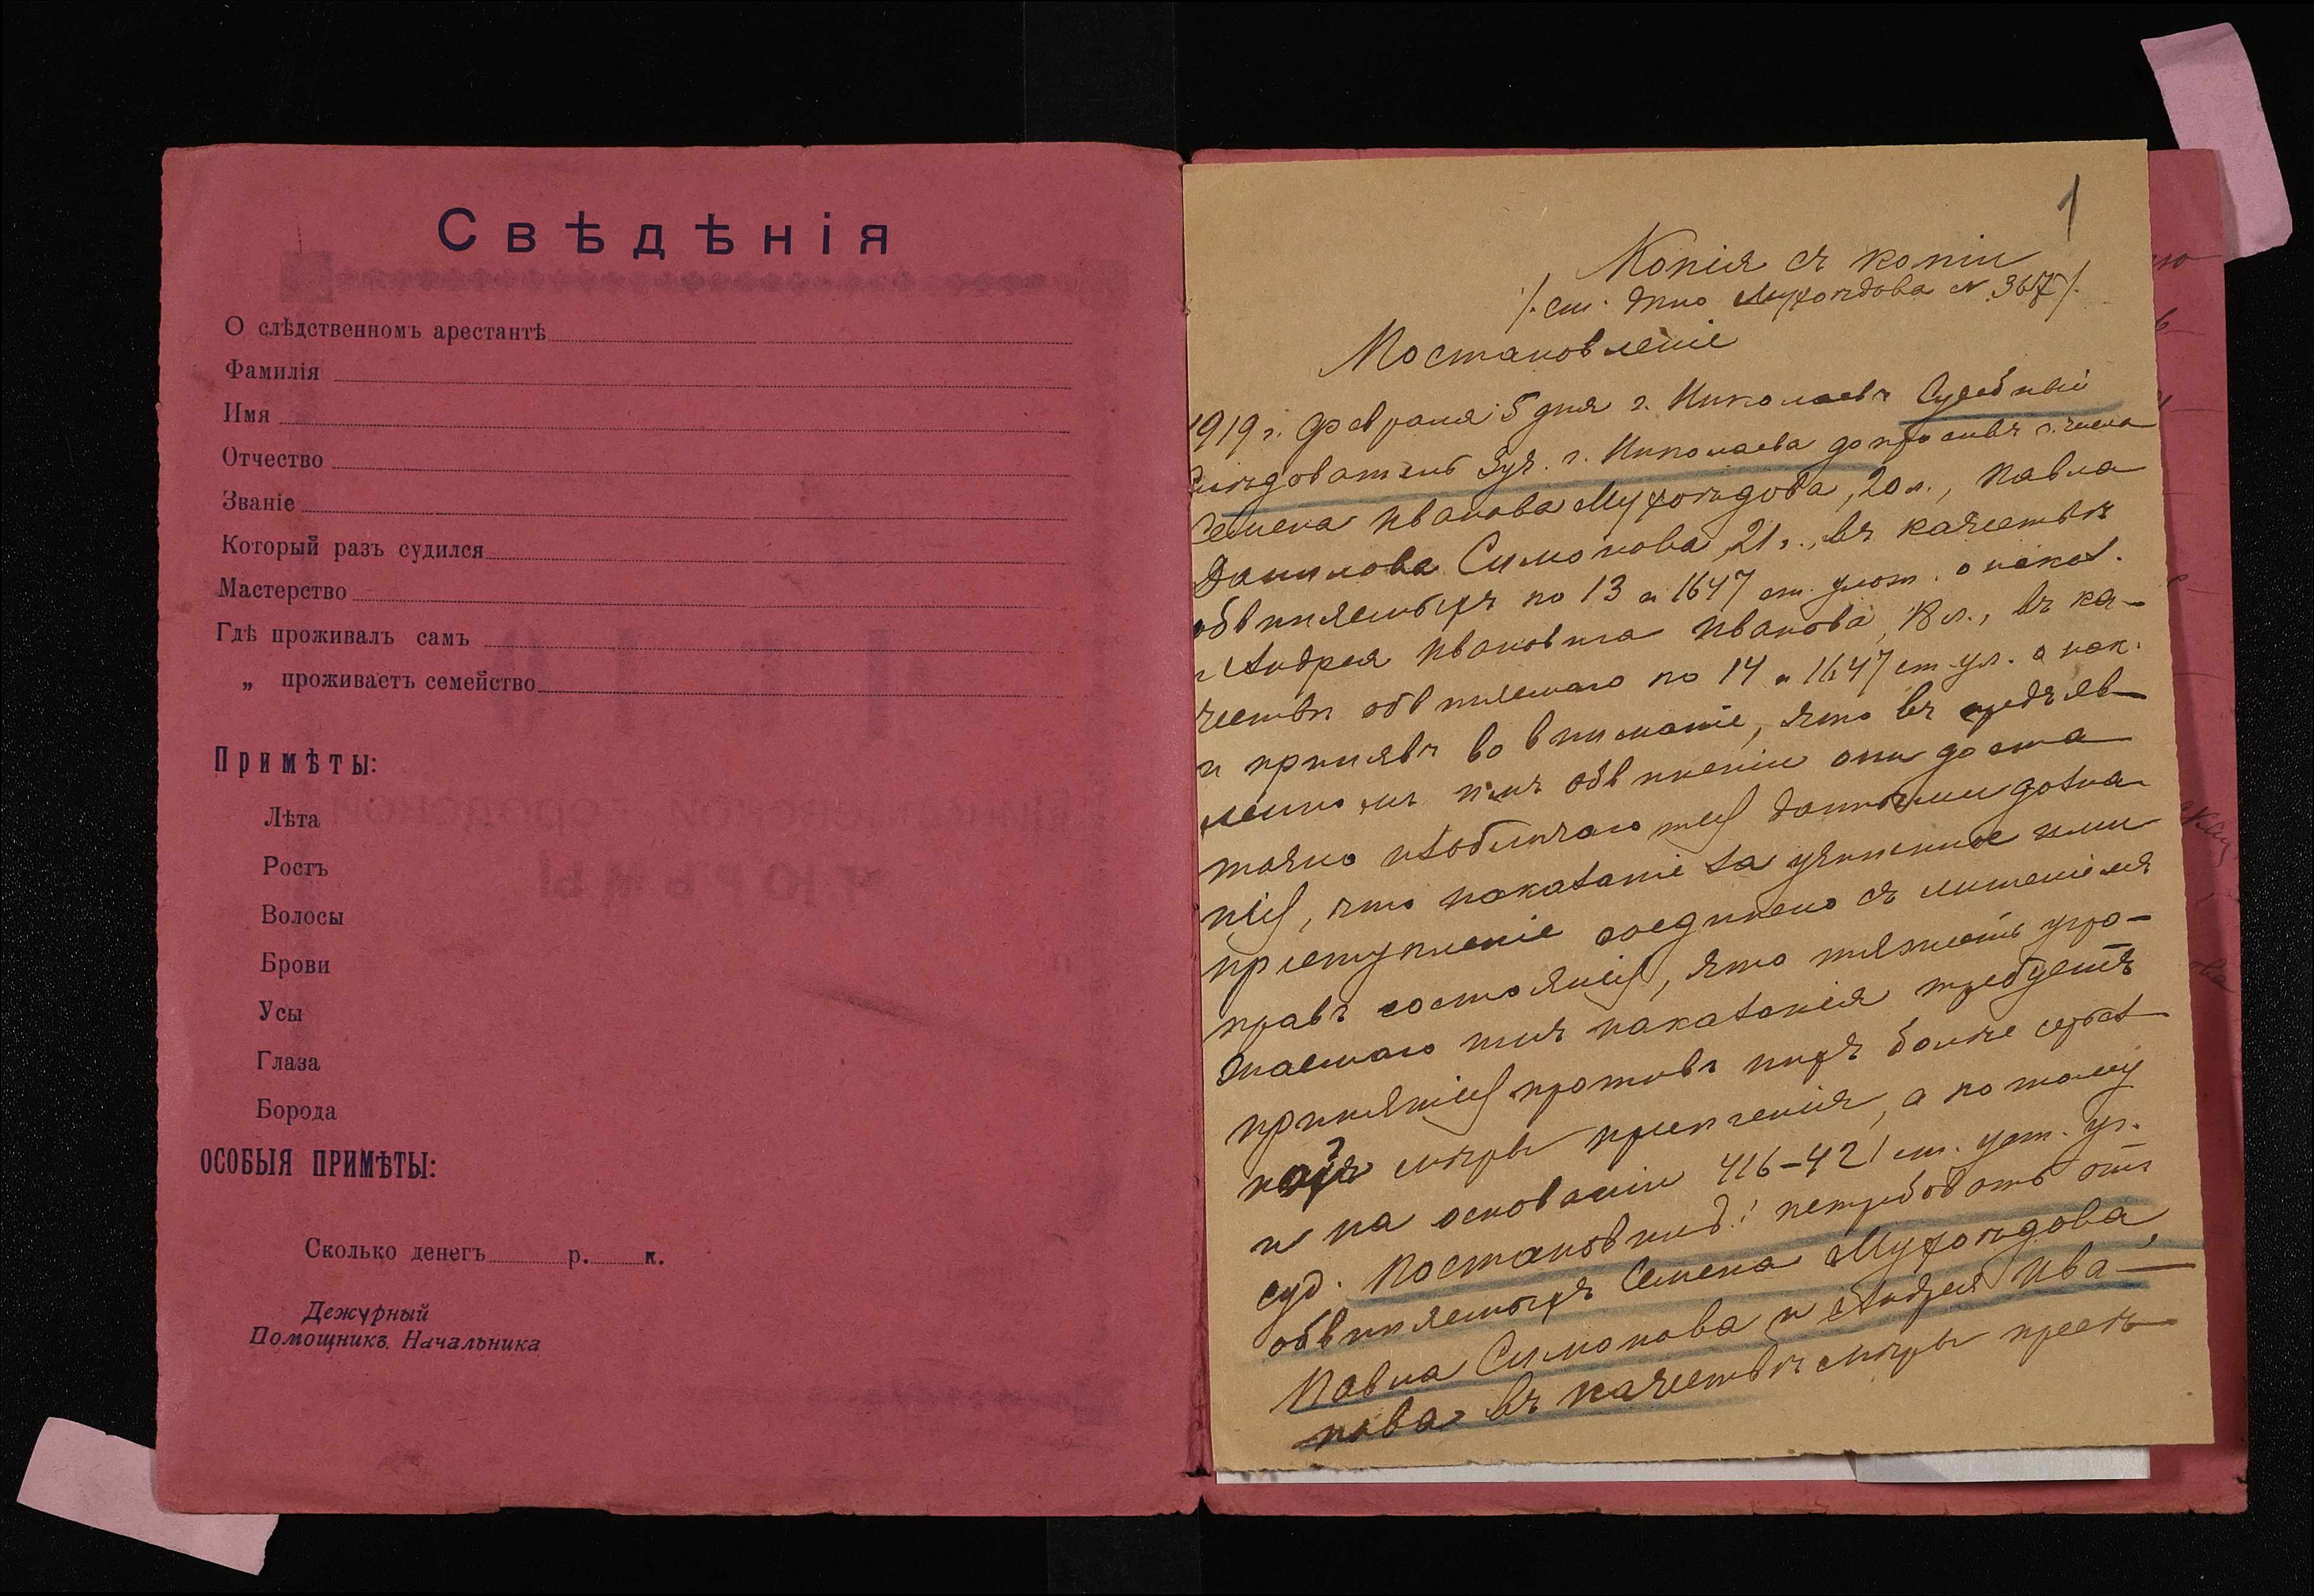 Свѣдѣнія
О слѣдственномъ арестантѣ
Фамилія
Имя
Отчество
Званіе
Который разъ судился
Мастерство
Гдѣ проживалъ самъ
„ проживаетъ семейство
Примѣты:
Лѣта
Ростъ
Волосы
Брови
Усы
Глаза
Борода
ОСОБЫЯ ПРИМѢТЫ:
Сколько денегъ р. к.
Дежурный
Помощникъ Начальника
1
Копія съ копіи
/. см. дѣло Мухоѣдова № 3657/.
Постановленіе
1919 г. февраля 5 дня г. Николаевъ Судебный
Слѣдователь 3 уч. г. Николаева допросивъ
Семена Иванова Мухоѣдова, 20 л., Павла
Данилова Симонова, 21 г., въ качествѣ
обвиняемыхъ по 13 и 1647 ст. улож. о наказ.
и Андрея Ивановича Иванова, 18 л., въ ка-
чествѣ обвиняемаго по 14 и 1647 ст ул. о нак.
и принявъ во вниманіе, что въ предъяв-
ленномъ имъ обвиненіи они доста
точно изобличаются данными дозна
нія, что наказаніе за учиненное ими
преступленіе соединено съ лишеніемъ
правъ состоянія, что тяжесть угро-
жаемаго имъ наказанія требуетъ
принятія противъ нихъ болѣе серьез
ной мѣры пресѣченія, а потому
и на основаніи 416-421 ст. уст. уг.
суд. Постановилъ: потребовать отъ
обвиняемыхъ Семена Мухоѣдова,
Павла Симонова и Андрея Ива-
нова въ качествѣ мѣры пресѣ-